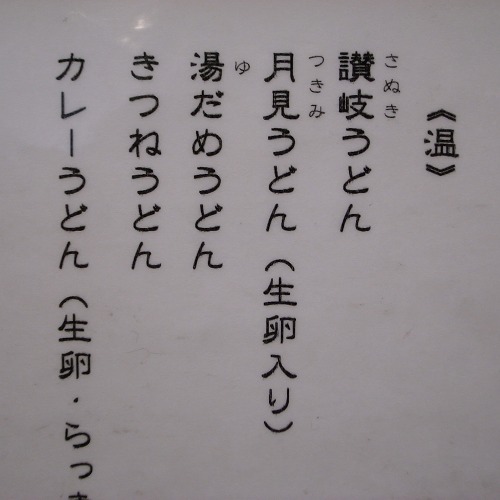 《温》
讃岐うどん
さぬき
月見うどん（生卵入り）
つきみ
湯だめうどん
ゆ
きつねうどん
カレーうどん（生卵・らっ